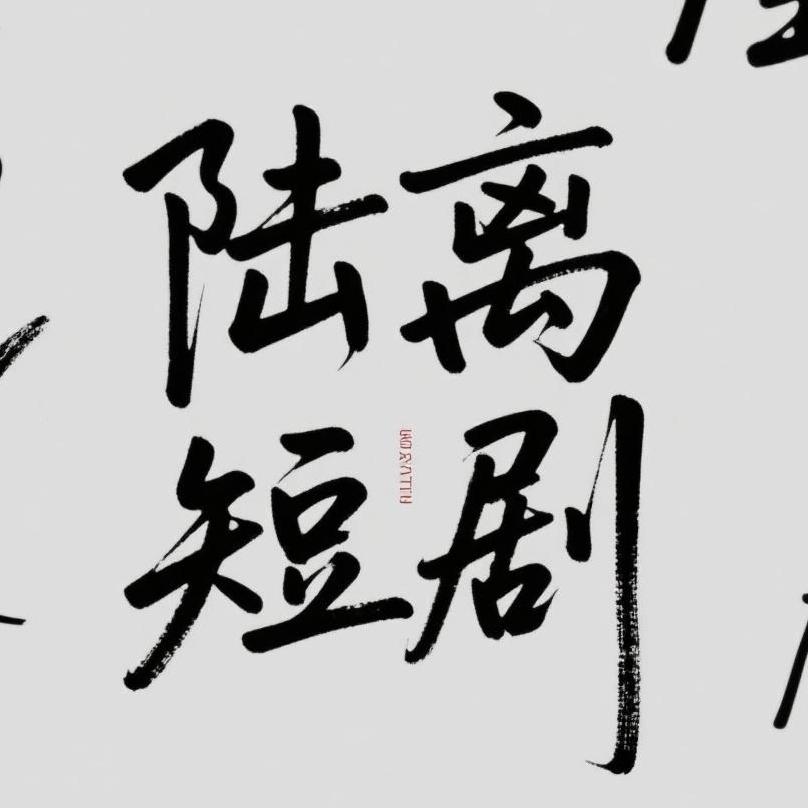 陆离
短剧